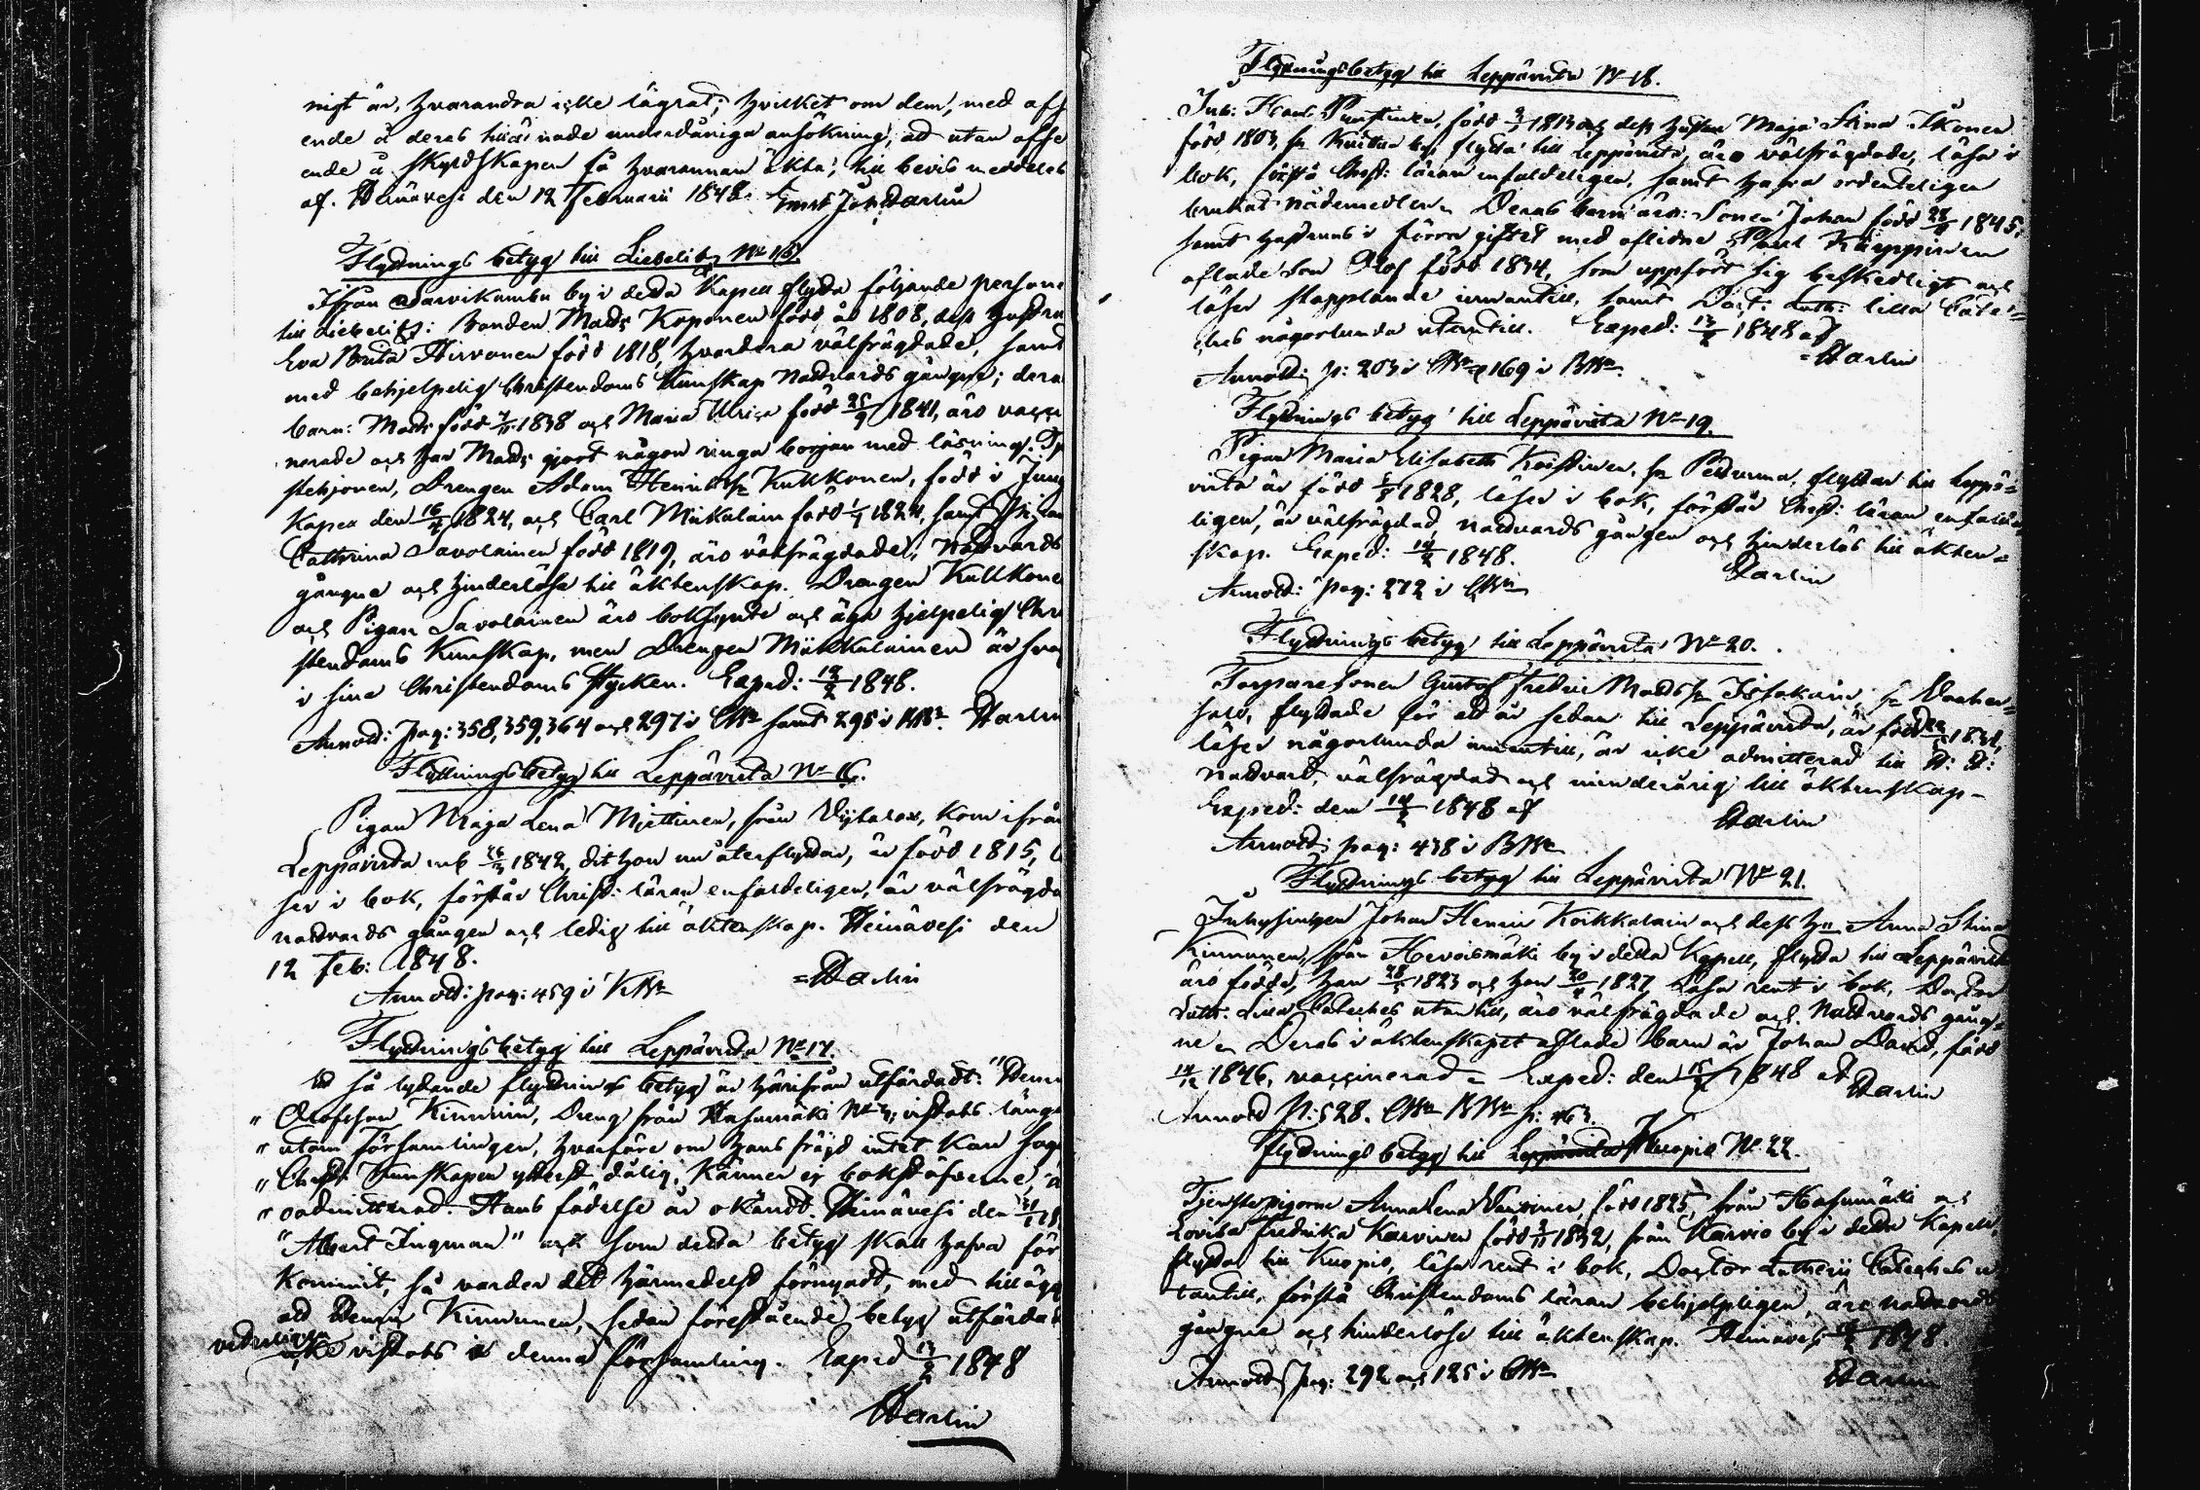 nigt är, hvarandra icke lägrat; hvilket om dem, med afs
ende å deras underdåniga ansökning, att utan afse
ende å skyldskapen få hvarannan äkta, till bevis meddelas
af. Heinävesi den 12 Februarii 1848. Ernst Joh: Harlin
Flyttnings betyg till Liebelitz No 15.
Ifrån Sarvikumbu by i detta Kapell flytta följande persone
till Liebelitz: Bonden Mats Koponen född år 1808, dess hustru
Eva Brita Hirvonen född 1818, hvardera välfrägdade, samt
med behjelpelig Christendoms Kunskap Nattvards gångne; dera
barn: Mats född 1838 och Maria Ulrica född 25/9 1841, äro vacci
nerade och har Mats gjort någon ringa början med läsning.
Drengen Adam Henriksson Kukkonen, född i Jung
Kapell den 16/4 1824, och Carl Miikalain född 1824, samt Pigan
Cathrina Savolainen född 1819, äro välfrägdade, Nattvards
gångne och hinderlöse till äktenskap. Drengen Kukkone
och Pigan Savolainen äro boksynte och äga hjelpelig Chri
stendoms Kunskap, men Drengen Miikkulainen är svag
i sina Christendoms stycken. Exped: 12/2 1848.
Annoth: pag: 358, 359, 364 och 297 i CBn samt 295 i BBn. Harlin
Flyttningsbetyg till Leppävirta No 16.
Pigan Maja Lena Miettinen, från Vihtalax, kom ifrån
Leppävirta 1842, dit hon nu återflyttar, är född 1815, lä
ser i bok, förstår Christ: läran enfaldeligen, är välfrägda
nattvards gången och ledig till äktenskap. Heinävesi den
12 Feb: 1848.
=Harlin
Annoth: pag: 459 i KBn
Flyttningsbetyg till Leppävirta No 17.
Ett så lydande flyttnings betyg är härifrån utfärdadt: "Henri
" Olofsson Kinnunin, Dreng från Hasumäki No 4, vistats länge
" utom församlingen, hvarföre om hans frägd intet kan säg
" Christ: Kunskapen ytterst dålig, känner ej bokstäfverne, o
" oadmitterad. Hans födelse är okändt. Heinävesi den
"Albert Ingman" och som detta betyg skall hafva för
kommit, så varder det härmedelst förnyadt, med tillägg
att Henrik Kinnunen, sedan föreståendee betyg utfärdat
vederligen icke vistats i denna församling. Exped 13/2 1848
Harlin
Flyttningsbetyg till Leppävirta No 18.
Inh: Hans Puustinen, född 1813 och dess hustru Maja Stina Ikonen
född 1803, fr. by, flytta till Leppävirta, äro välfrägdade, läsa i
bok, förstå Christ: läran enfaldeligen, samt hafva ordenteligen
brukat nådemedlen. Deras barn äro: Sonen Johan född 1845,
samt hustruns i förra giftet med aflidne Käuppinen
aflade son Olof född 1834, som uppfört sig beskedligt och
läser stapplande innantill, samt Doct: Luth: lilla Cate=
ches någorlunda utantill. Exped: 13/2 1848 af
=Harlin
Annoth: p: 203 i CBn och 169 i BBn.
Flyttnings betyg till Leppävirta No 19.
Pigan Maria Elisabeth Koistinen, fr. Petrumma, flyttar till Leppä=
virta är född 1828, läser i bok, förstår Christ: läran enfalde
ligen, är välfrägdad, nattvards gången och hinderlös till äkten=
skap. Exped: 14/2 1848.
Harlin
Annoth: pag: 272 i CBn
Flyttnings betyg till Leppävirta No 20.
Torparesonen Gustaf Fredric Matsson Issakain, fr.
salo, flyttade för ett år sedan till Leppävirta, är född
läser någorlunda innantill, är icke admitterad till H: H:
Nattvard, välfrägdad och minderårig till äktenskap -
Exped: den 14/2 1848 af
Harlin
Annoth: pag: 438 i BBn
Flyttnings betyg till Leppävirta No 21.
Inhysingen Johan Henric Koikkalain och dess hu Anna Stina
Kinnunen, från Kervismäki by i detta Kapell, flytta till Leppävirta
äro födde, han 1823 och hon 1827, läsa rent i bok, Doctor
Luth: lilla Cateches utantill, äro välfrägdade och Nattvards gång=
ne. Deras i äktenskapet aflade barn är Johan David, född
14/12 1846, vaccinerad = Exped: den 15/2 1848 af Harlin
Annoth p: 528. CBn BBn p: 463.
Flyttnings betyg till Kuopio No 22.
Tjenstepigorne Anna Lena född 1825, från Hasumäki och
Lovisa Fredrika Karvinen född 1832, från Karvio by i detta Kapell,
flytta till Kuopio, läsa rent i bok, Doctor Lutherii Cateches u
tantill, förstå Christendoms läran behjelpligen, äro nattvards
gångne och hinderlöse till äktenskap. Heinävesi 1848.
Harlin
Annoth: pag: 292 och 125 i CBn